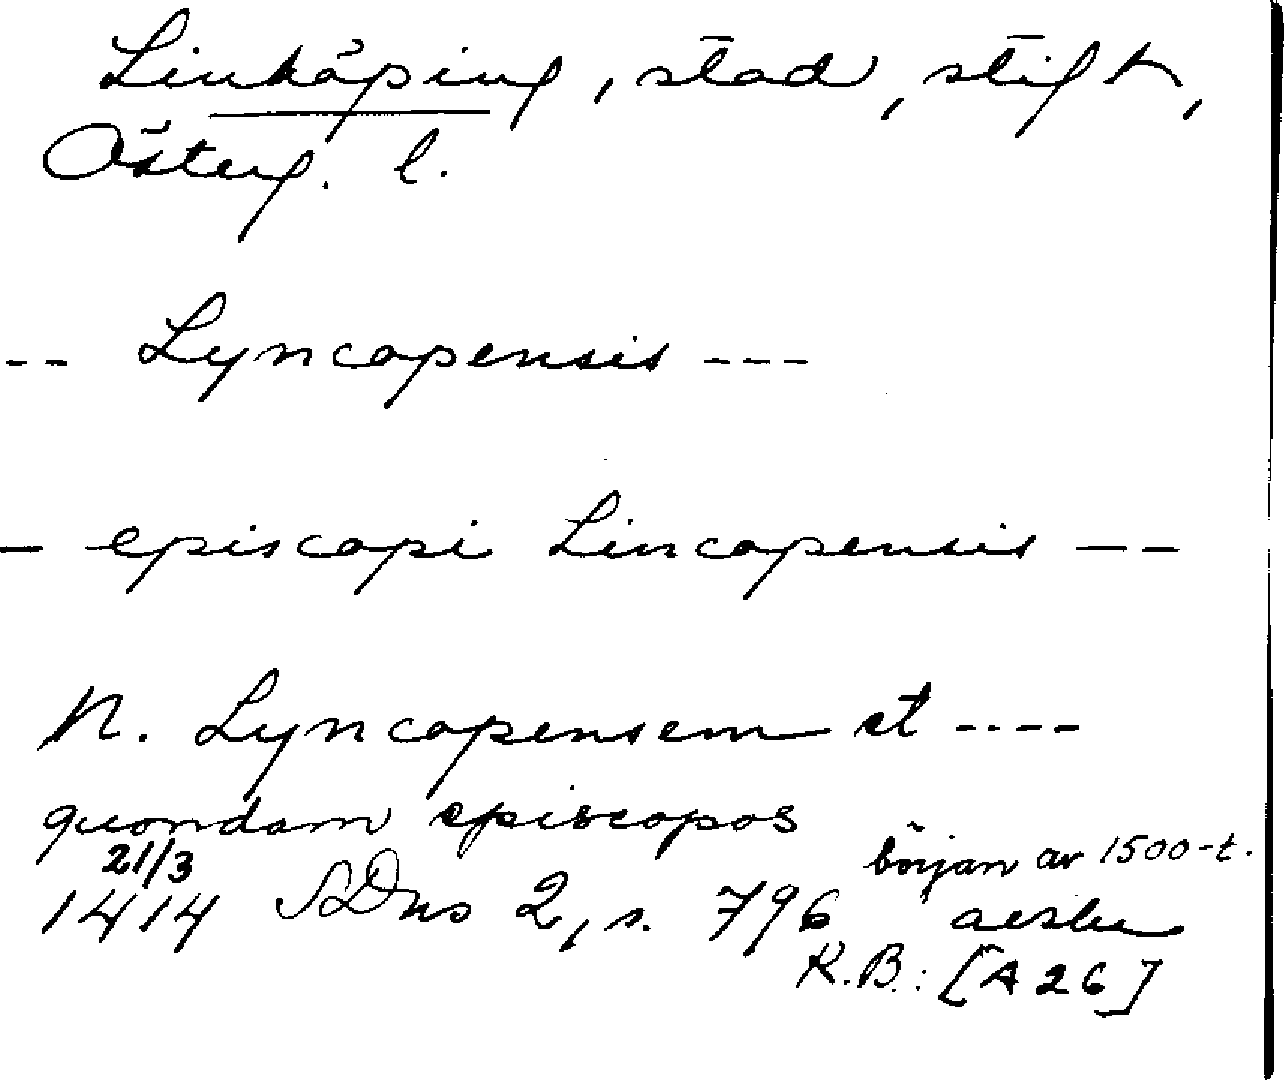 Linköping, stad, stift,
Österg. l.
-- Lyncopensis ---
- episcopi Lincopensis --
N. Lyncopensem et ----
quondam episcopos
21/3 början av 1500-t.
1414 SDns 2, s. 796 avskr
K.B.: [A 26]